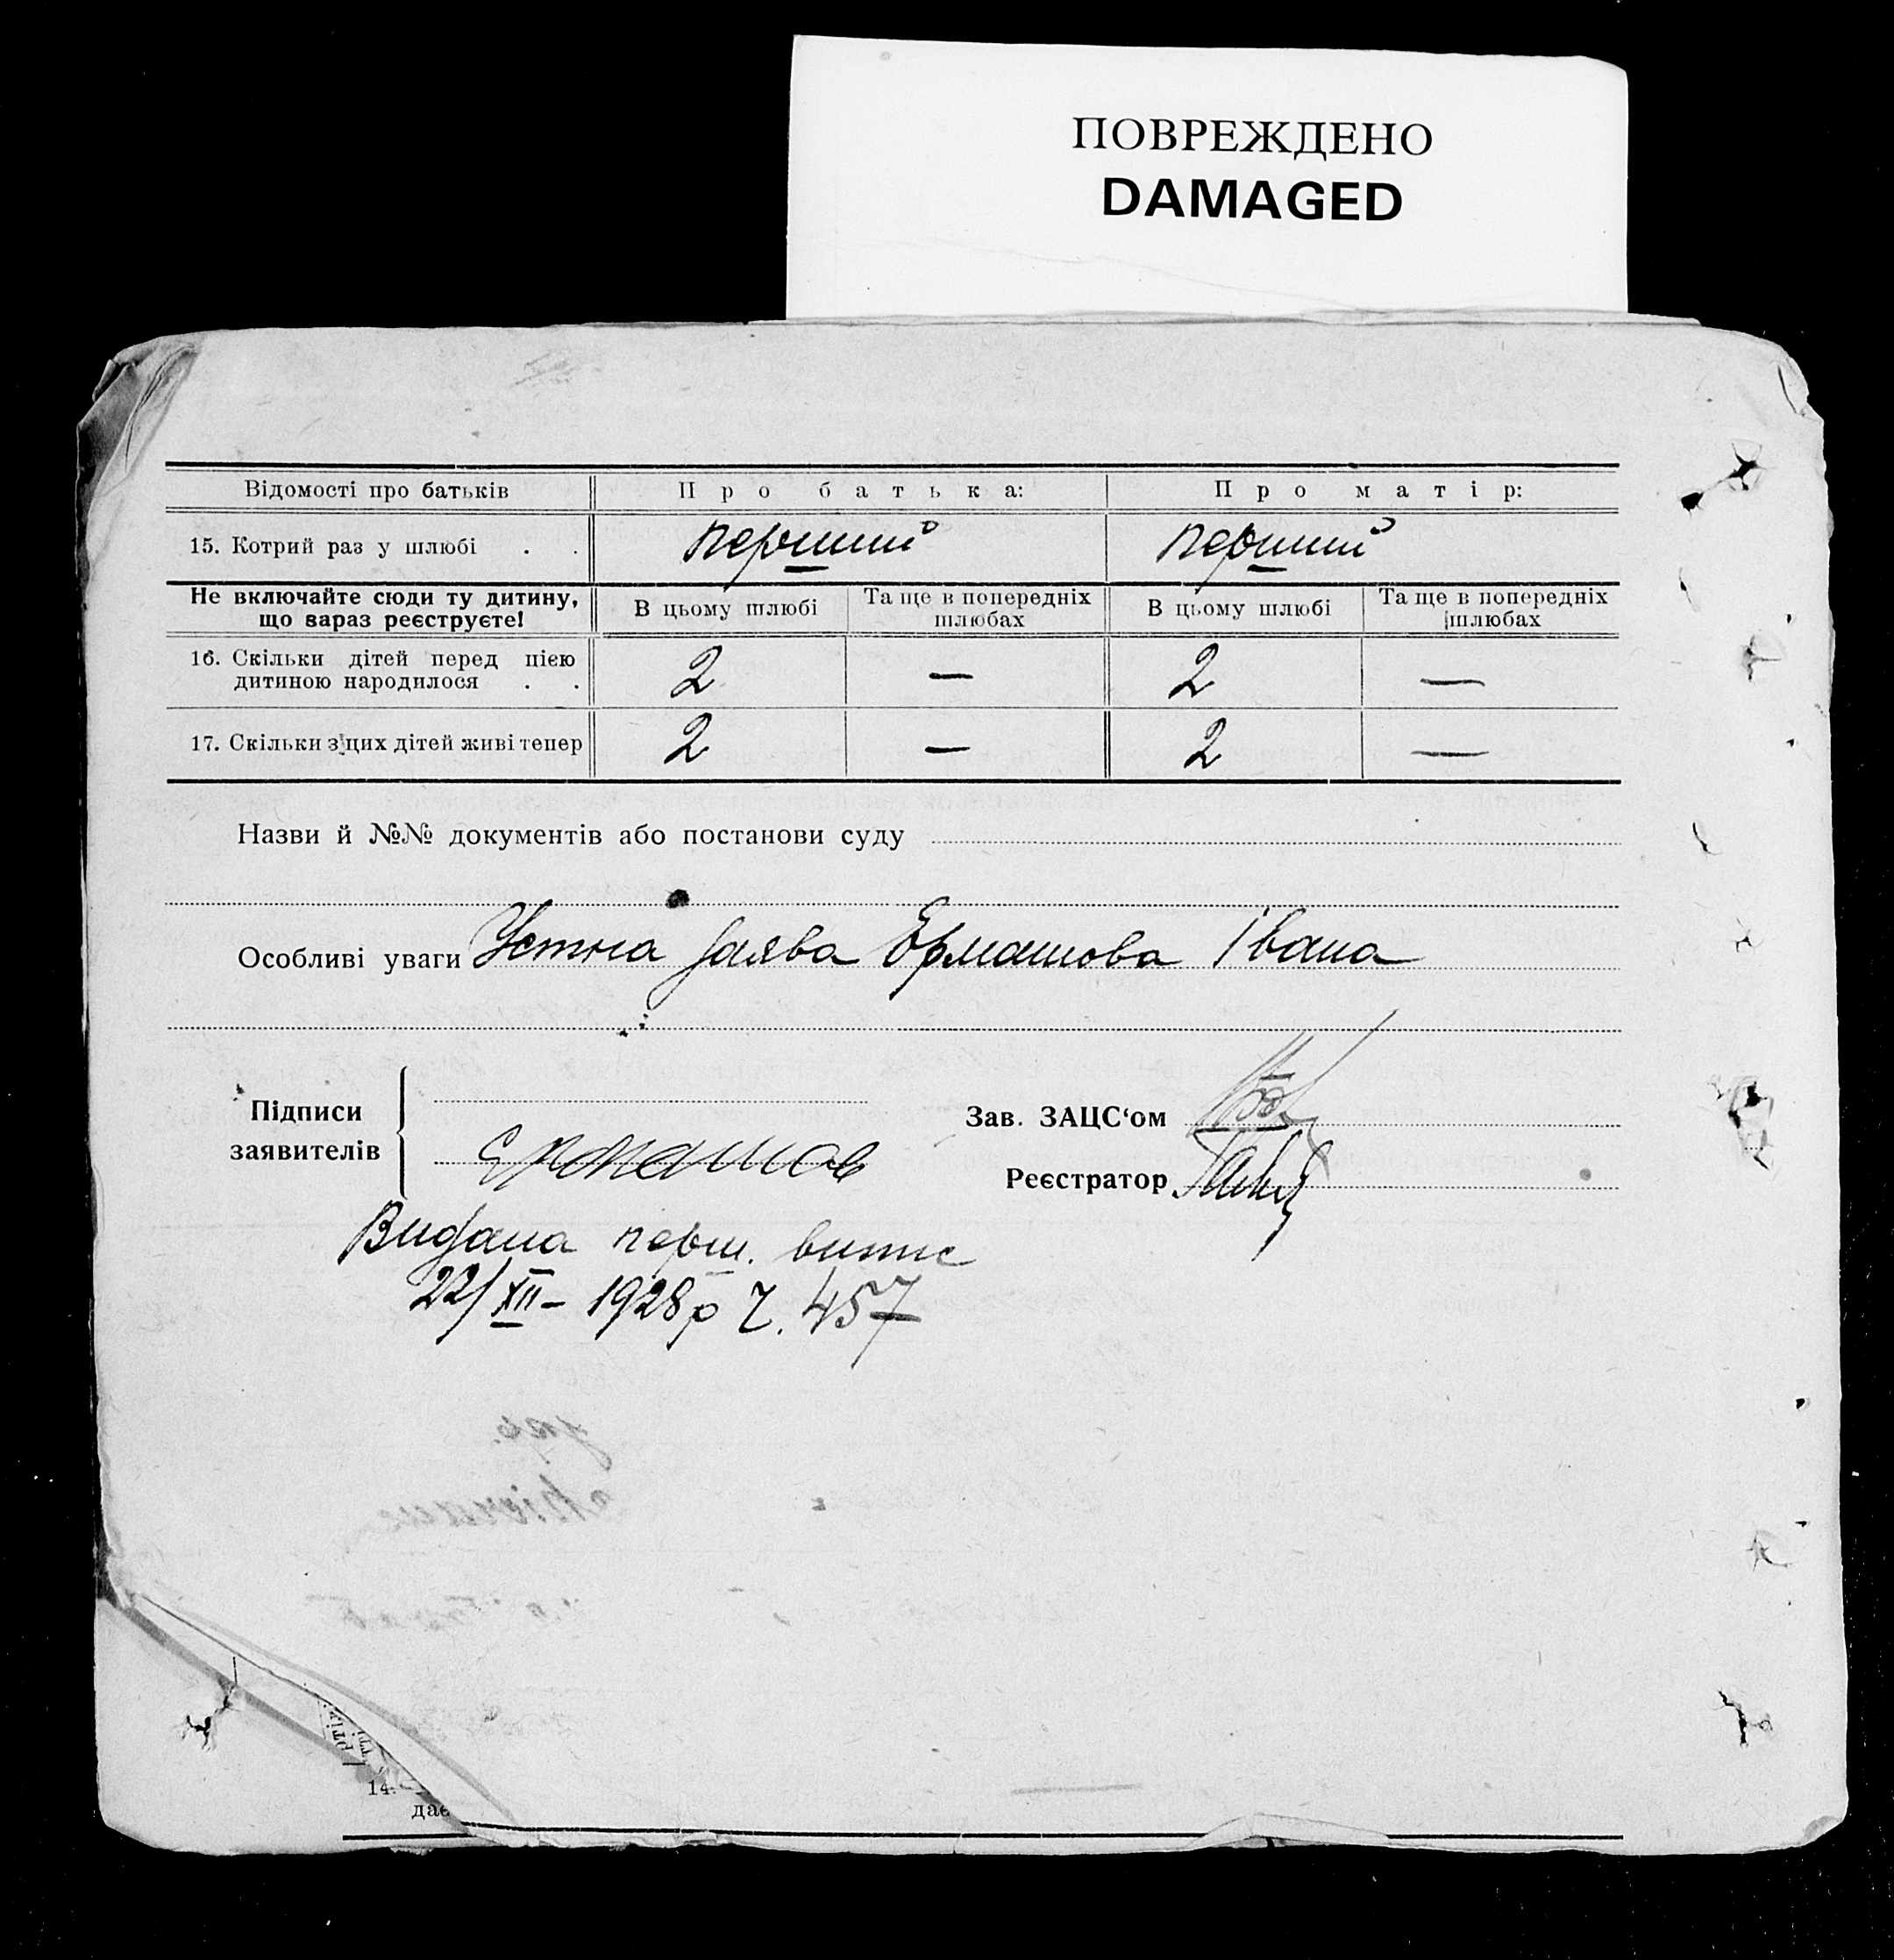 ПОВРЕЖДЕНО
DAMAGED
Відомості про батьків Про батька: Про матір:
15. Котрий раз у шлюбі . . перший перший
Не включайте сюди ту дитину, що зараз реєструєте! В цьому шлюбі Та ще в попередніх шлюбах В цьому шлюбі Та ще в попередніх шлюбах
16. Скільки дітей перед цією дитиною народилося . . 2 — 2 —
17. Скільки з цих дітей живі тепер 2 — 2 —
Назви й №№ документів або постанови суду
Особливі уваги Устна заява Ермашова Івана
Підписи заявителів Ермашов
Зав. ЗАЦС‘ом
Реєстратор
Видана перш. випис
22/XII – 1928р Ч. 457
14.
дає